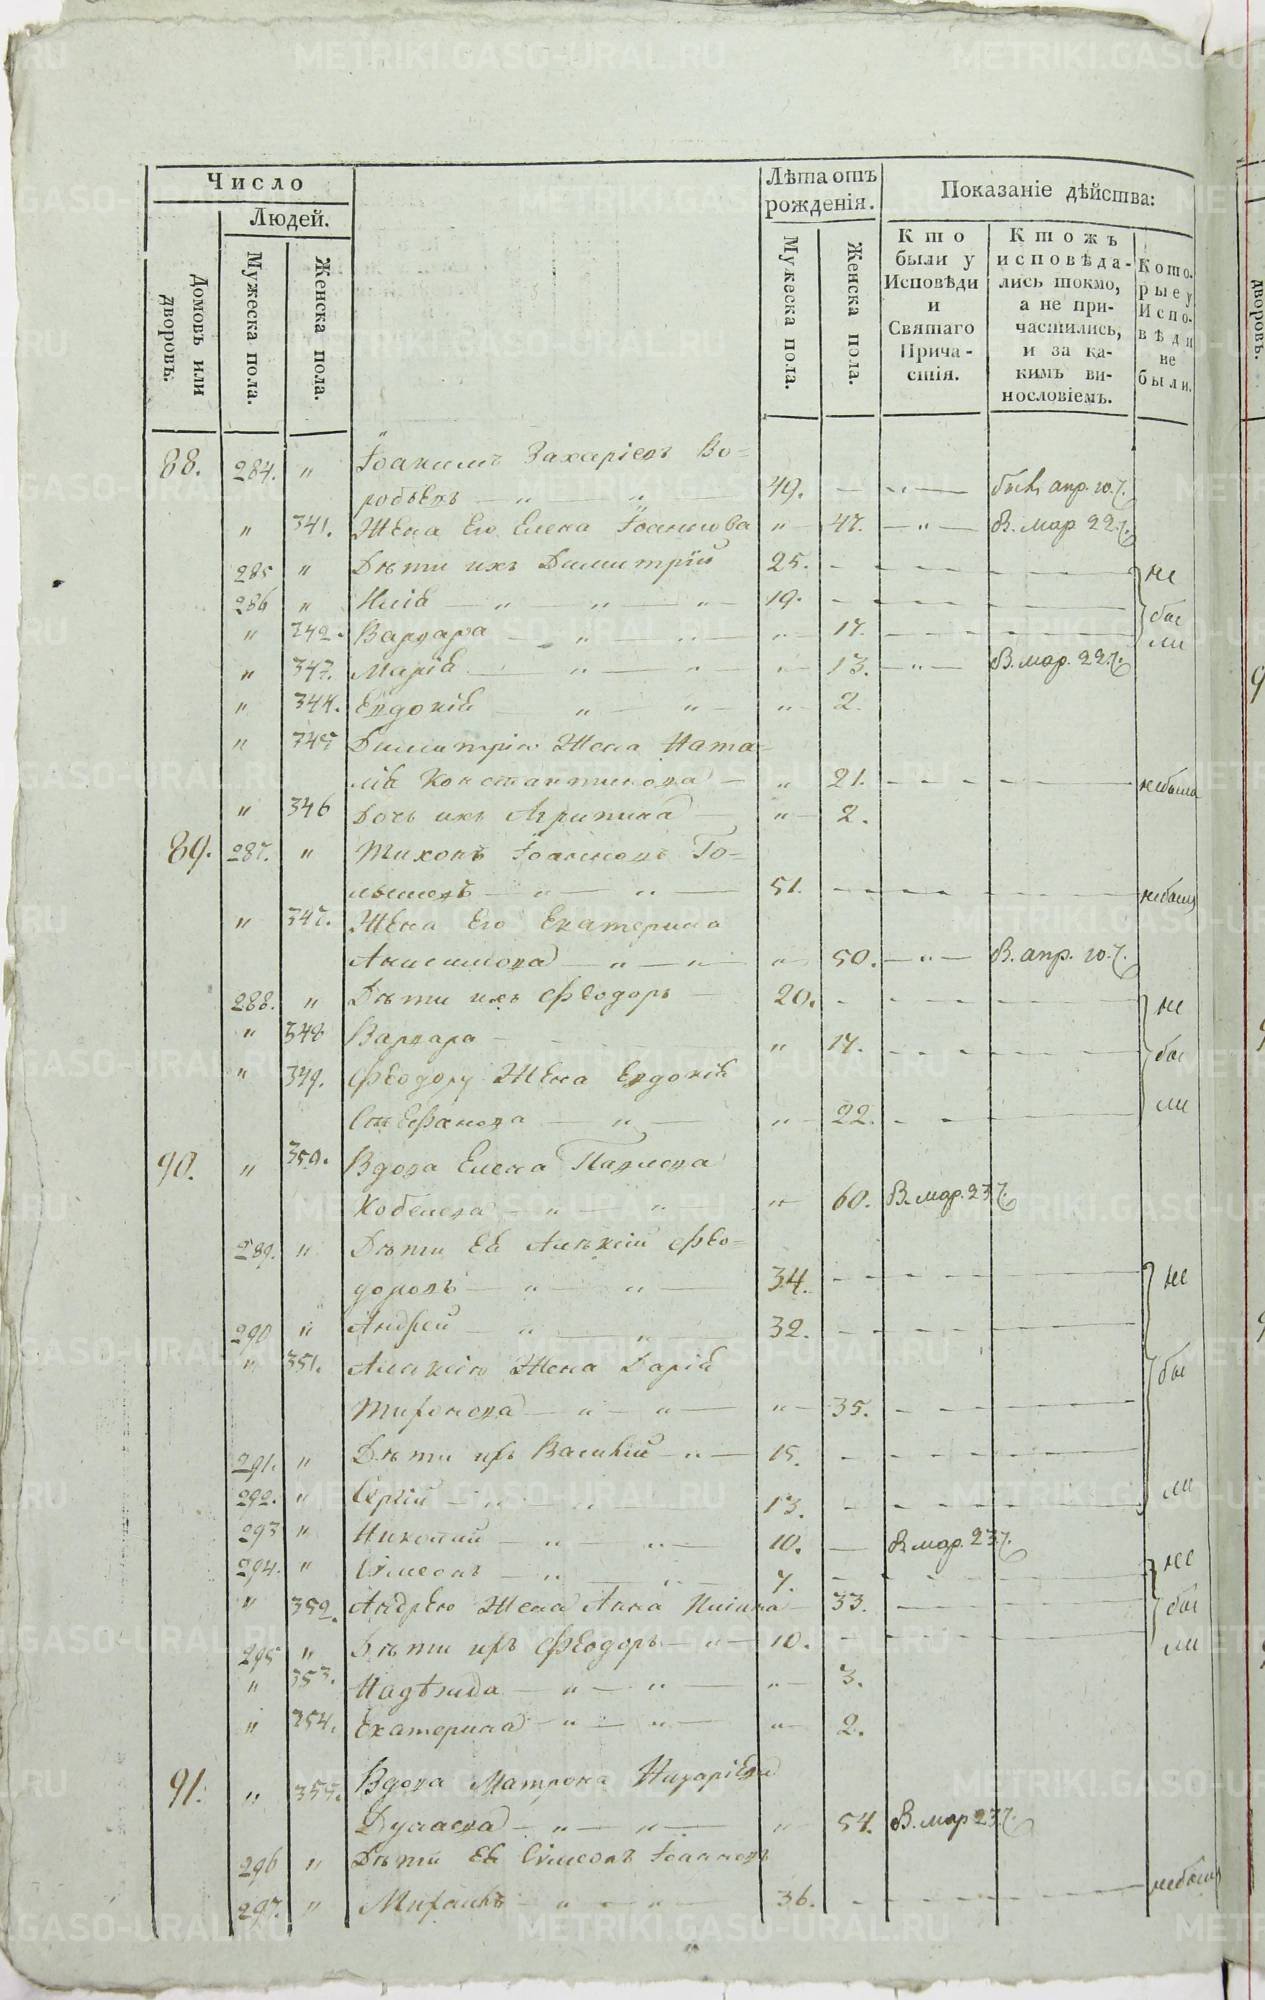 Число
Людей.
Домовъ или дворовъ.
Мужеска пола.
Женска пола.
Лѣта отъ рожденія.
Мужеска пола.
Женска пола.
Показаніе дѣйства:
Кто были у Исповѣди и Святаго Прича-стія.
Ктожъ исповѣда-лись токмо, а не при-частились, и за ка-кимъ ви-нословіемъ.
Кото-рые у Испо-вѣди не были.
88. 284. " Іоакимъ Захаріевъ Во=
робьевъ — " — " — 49. — " — апр. 10.
" 341. Жена Его Елена Іоаннова " 47. — " — В. мар 22
285 " Дѣти ихъ Димитрій 25. не
286 " Илія — " — " — " — 19. бы
" 342. Варвара — " — " — " 17. ли
" 343. Марія — " — " — " 13. — " — В. мар. 22
" 344. Евдокія — " — " — " 2.
" 345 Димитрію Жена Ната=
лія Константинова — " 21. небыла
" 346 Дочь ихъ Агрипина — " 2.
89. 287. " Тихонъ Іоанновъ Го=
— " — " — 51.
" 347. Жена Его Екатерина
Анисимова — " — " — " 50. — " — В. апр. 10.
288. " Дѣти ихъ Феодоръ 20. не
" 348 Варвара — " 17. бы
" 349. Феодору Жена Евдокія
Стефанова — " — " 22. ли
90. " 350. Вдова Елена Павлова
Кобелева — " — " — " 60. В. мар. 23
289. " Дѣти Ея Алекѣй Фео=
доровъ — " — " — 34. не
290 " Андрей — " — " — 32.
" 351. Алекѣю Жена Дарія бы
Миронова — " — " — " 35.
291. " Дѣти ихъ Василій — " — 15.
292. " Сергій — " — " — 13. ли
293 " Николай — " — " — 10. — В. мар. 23
294. " Симеонъ — " — 7. не
" 352. Андрею Жена Анна Илі́ина 33. бы
295 " Дѣти ихъ Феодоръ — " — 10. ли
" 353. Надѣжда — " — " — " 3.
" 354. Екатерина — " — " — " 2.
91. " 355. Вдова Матрона
— " — " — " 54. В. мар 23
296 " Дѣти Ея Симеонъ Іоанновъ
297. " — " — " — 36.
METRIKI.GASO-URAL.RU